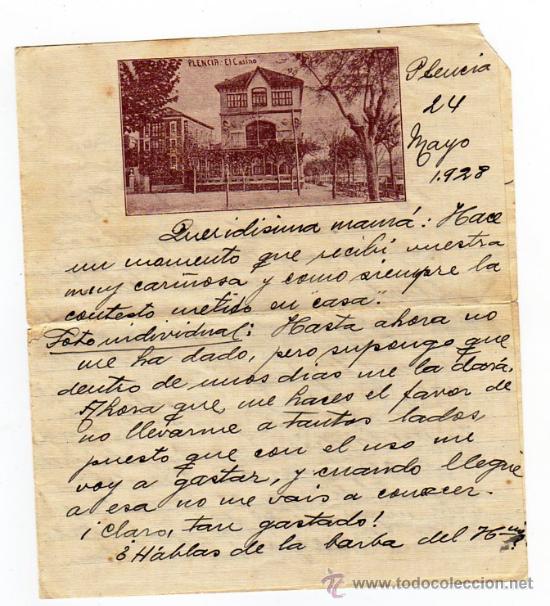 PLENCIA - El Casino
Plencia
24
Mayo
1.928
Queridisima mamá: Hace
un momento que recibí vuestra
muy cariñosa y como siempre la
contesto metido en "casa".
Foto individual: Hasta ahora no
me ha dado, pero supongo que
dentro de unos dias me la dará.
Ahora que me haces el favor de
no llevarme a tantos lados
puesto que con el uso me
voy a gastar, y cuando llegue
a esa no me vais a conocer.
¡Claro, tan gastado!
¿Hablas de la barba del
www.todocoleccion.net